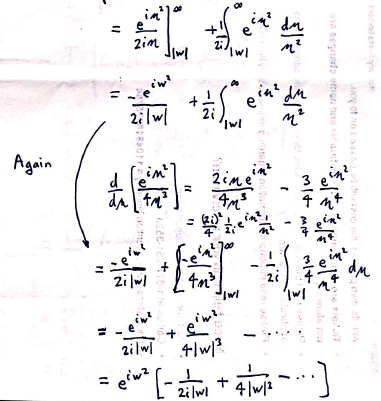 = e^{in²}/2in ]_{|w|}^∞ + 1/2i ∫_{|w|}^∞ e^{in²} dn/n²
= -e^{iw²}/2i|w| + 1/2i ∫_{|w|}^∞ e^{in²} dn/n²
Again
d/dn [e^{in²}/4n³] = 2in e^{in²}/4n³ - 3/4 e^{in²}/n⁴
= (2i)²/4 1/2i e^{in²} 1/n² - 3/4 e^{in²}/n⁴
= -e^{iw²}/2i|w| + [-e^{in²}/4n³]_{|w|}^∞ - 1/2i ∫_{|w|}^∞ 3/4 e^{in²}/n⁴ dn
= -e^{iw²}/2i|w| + e^{iw²}/4|w|³ - .....
= e^{iw²} [-1/2i|w| + 1/4|w|³ - ...]